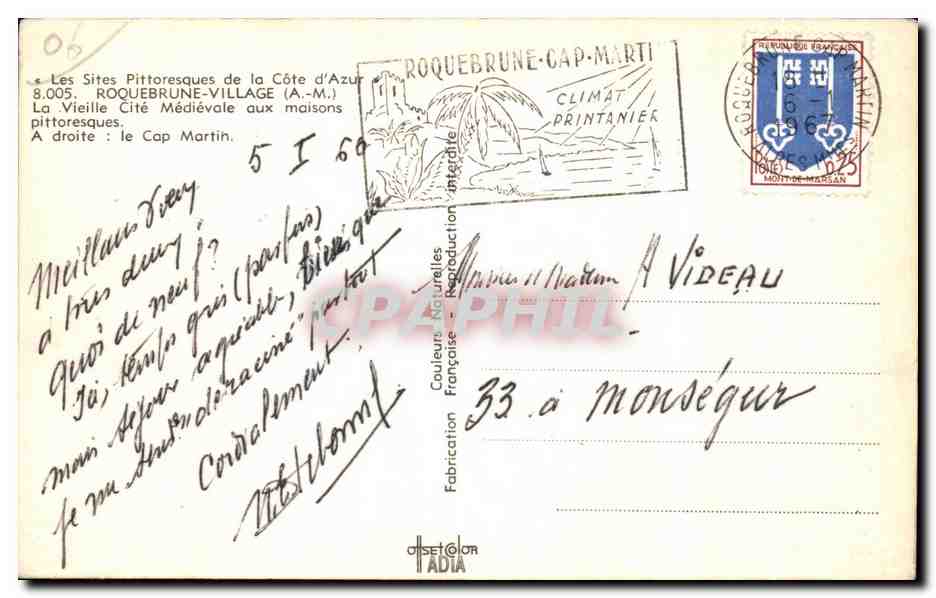 « Les Sites Pittoresques de la Côte d'Azur
8.005. ROQUEBRUNE-VILLAGE (A.-M.)
La Vieille Cité Médiévale aux maisons
pittoresques.
A droite : le Cap Martin.
06
ROQUEBRUNE-CAP-MARTI
CLIMAT
PRINTANIER
ROQUEBRUNE CAP MARTIN
18
6 -1
1967
ALPES MMES
REPUBLIQUE FRANÇAISE
0.25
MONT-DE-MARSAN
5 I 66
Meilleurs Voeux
à tous deux,
Quoi de neuf ?
Ici, temps gris (parfois)
mais séjour agréable, bien que
je me sens "déraciné" partout
Cordialement.
Couleurs Naturelles
Fabrication Française - Reproduction interdite
CPAPHIL
Monsieur et Madame A VIDEAU
33 à Monségur
OFFSETCOLOR
ADIA